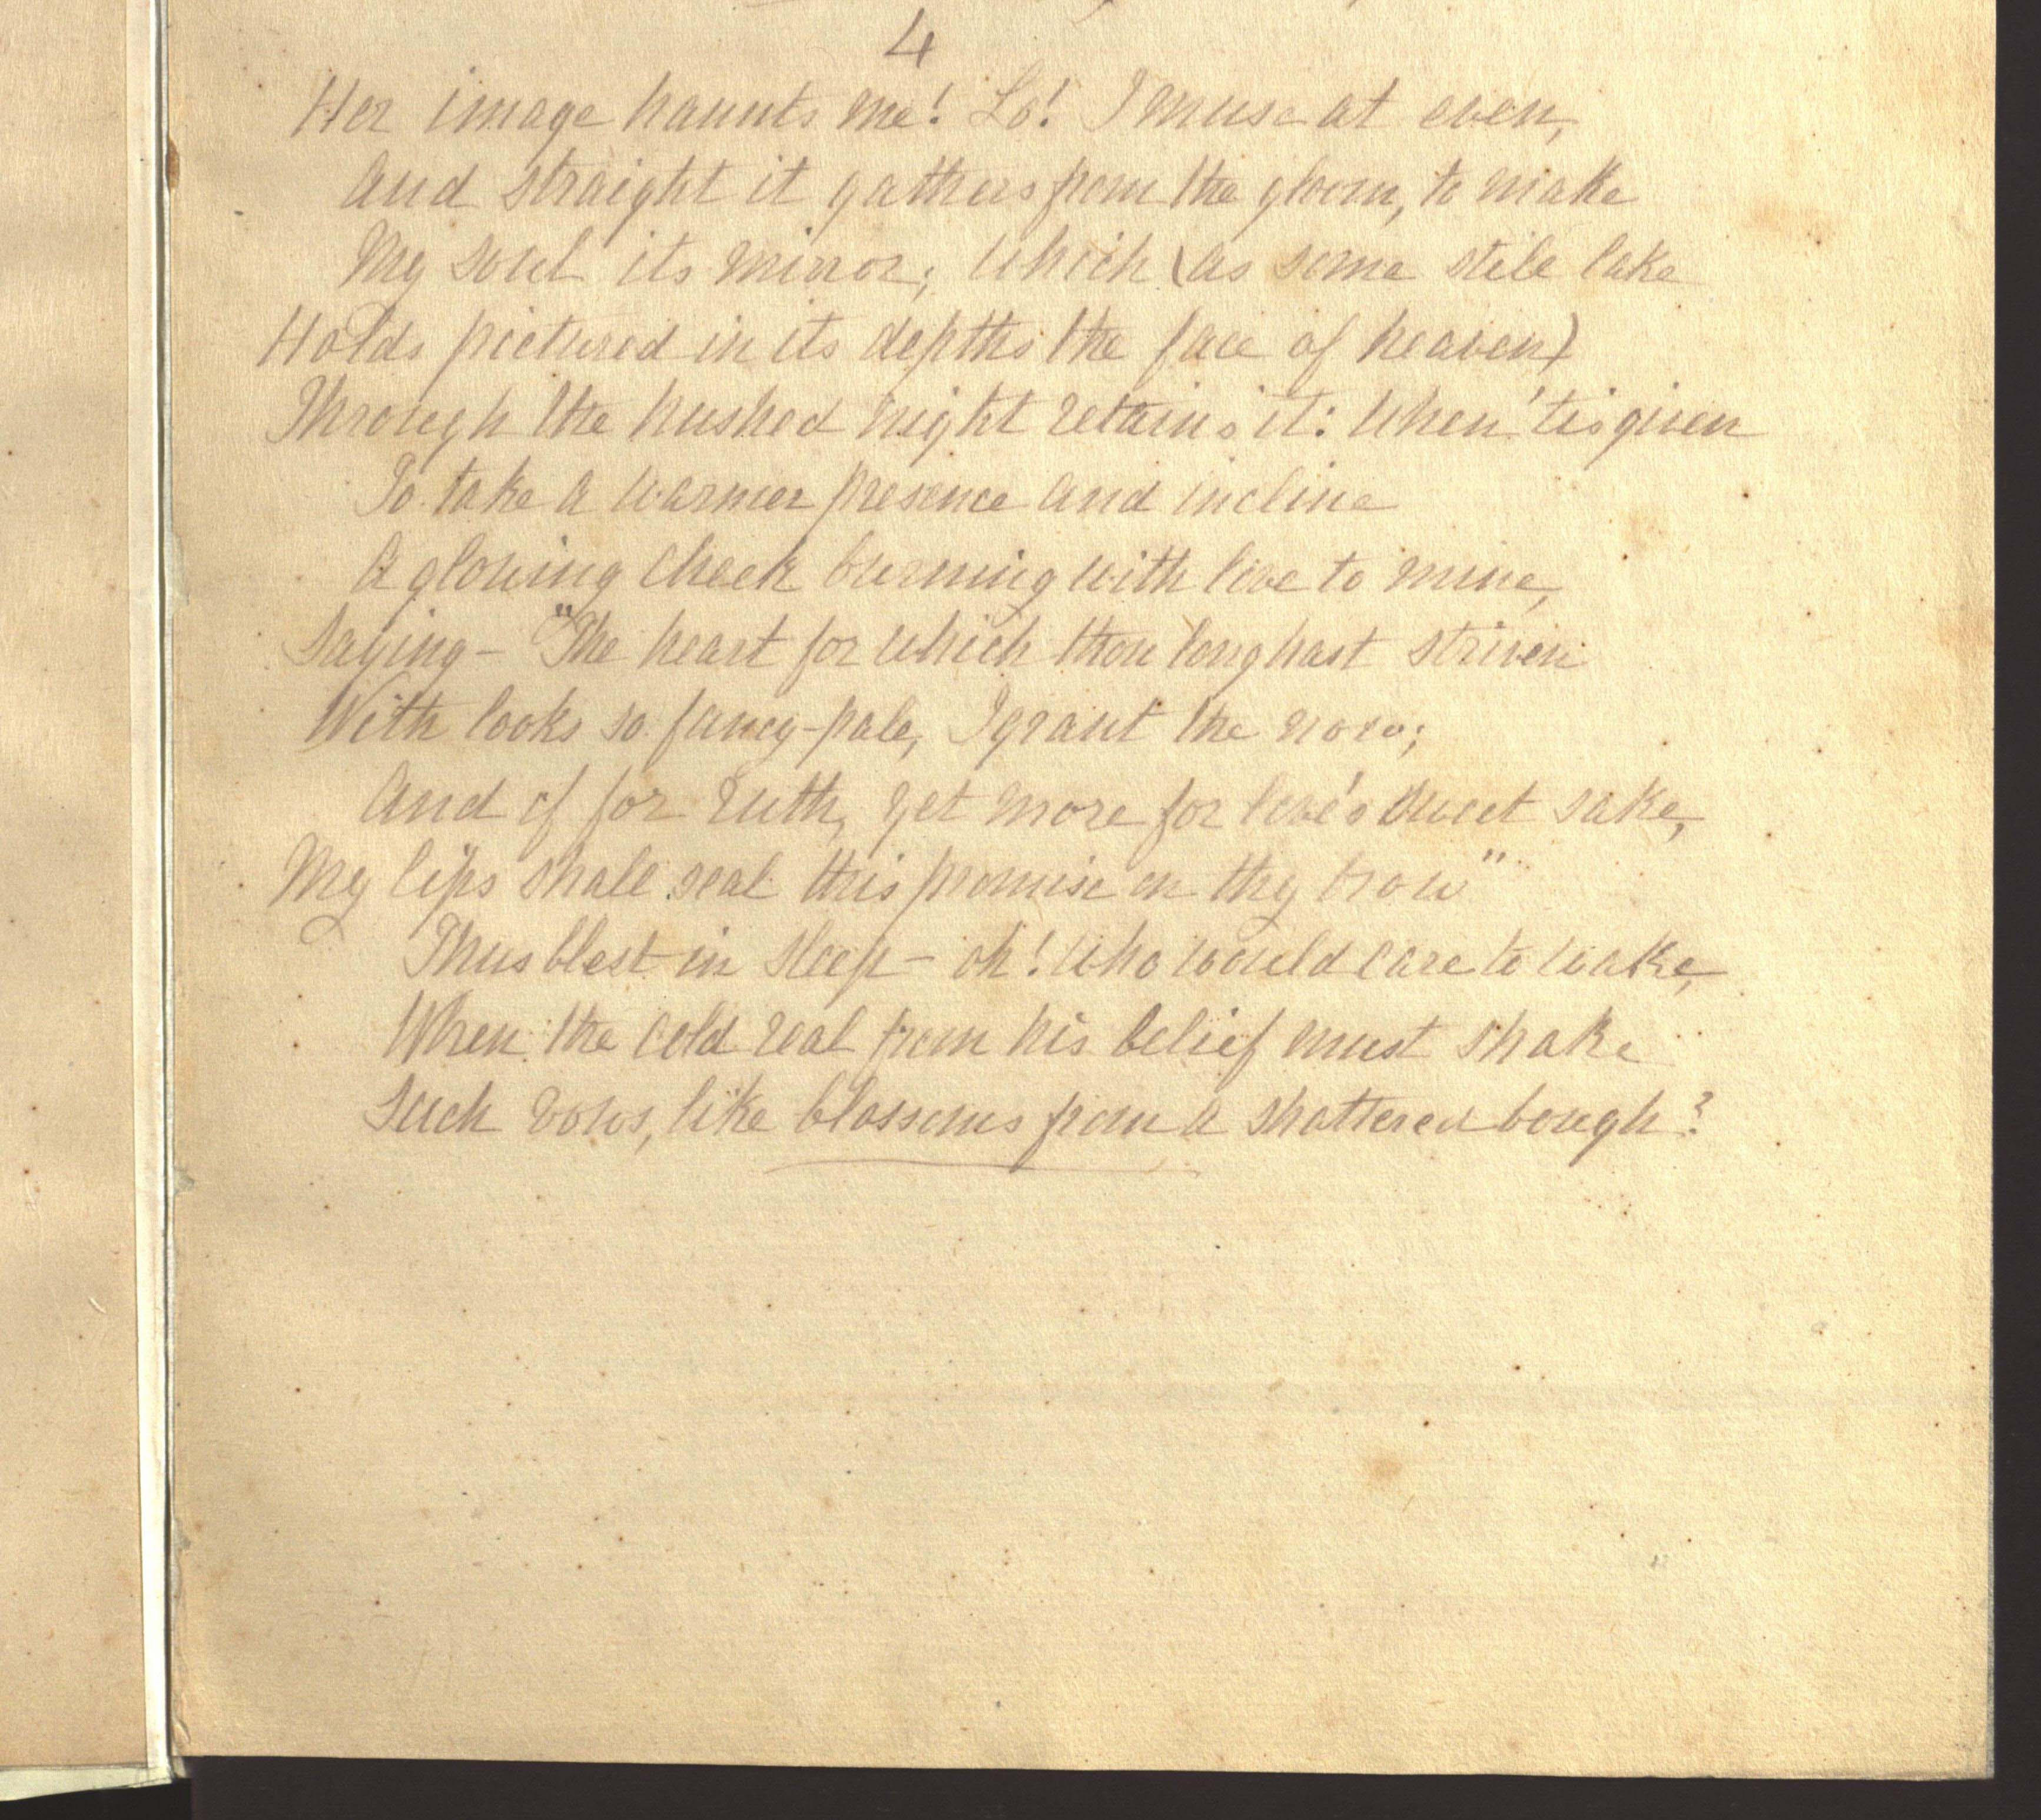 4
Her image haunts me! Lo! I muse at even,
And straight it gathers from the gloom, to make
My soul its mirror; which (as some still lake
Holds pictured in its depths the face of heaven)
Through the hushed night retains it: when 'tis given
To take a warmer presence and incline
A glowing cheek burning with love to mine,
Saying – "The heart for which thou long hast striven
With looks so fancy-pale, I grant the now;
And if for ruth, yet more for love's sweet sake,
My lips shall seal this promise on thy brow"
Thus blest in sleep – oh! who would care to wake,
When the cold real from his belief must shake
Such vows, like blossoms from a shattered bough?